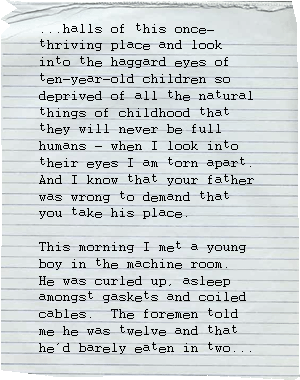 ...halls of this once-
thriving place and look
into the haggard eyes of
ten-year-old children so
deprived of all the natural
things of childhood that
they will never be full
humans - when I look into
their eyes I am torn apart.
And I know that your father
was wrong to demand that
you take his place.

This morning I met a young
boy in the machine room.
He was curled up, asleep
amongst gaskets and coiled
cables.  The foremen told
me he was twelve and that
he'd barely eaten in two...